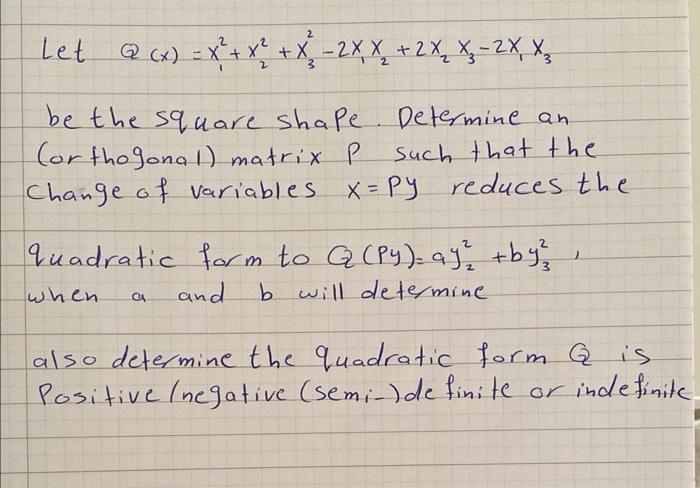 Let Q(x) = x₁² + x₂² + x₃² - 2x₁x₂ + 2x₂x₃ - 2x₁x₃
be the square shape. Determine an
(orthogonal) matrix P such that the
Change of variables x = Py reduces the
quadratic form to Q(Py) = ay₂² + by₃²,
when a and b will determine
also determine the quadratic form Q is
Positive/negative (semi-)definite or indefinite